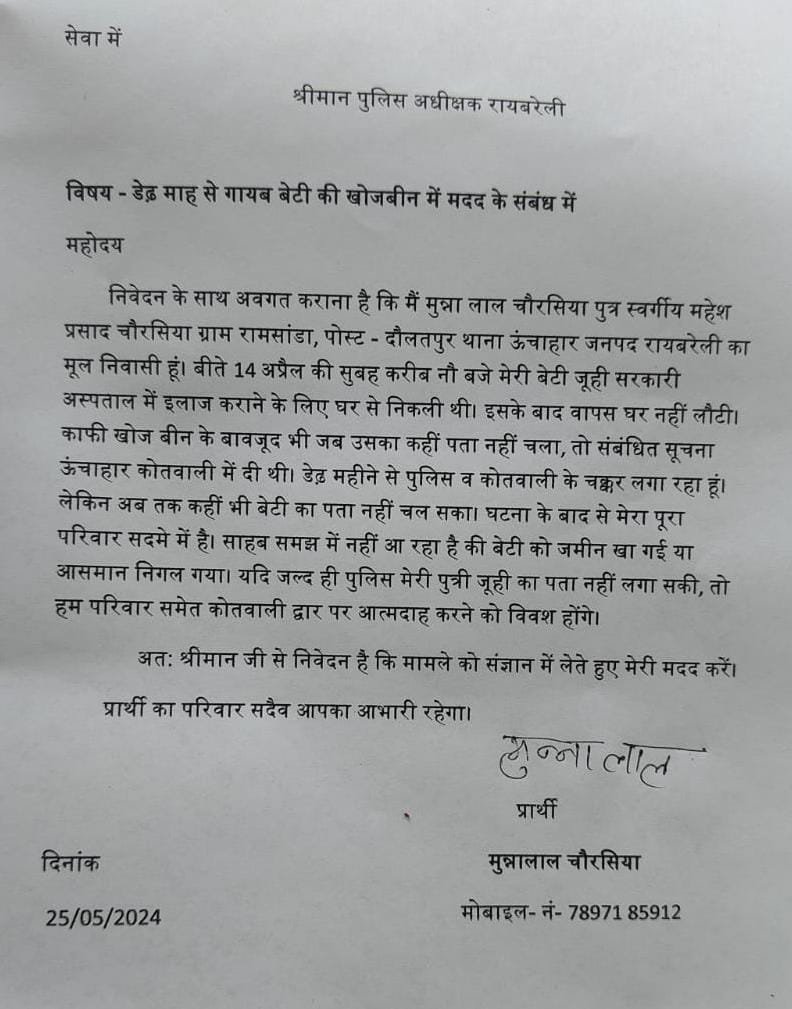 सेवा में
श्रीमान पुलिस अधीक्षक रायबरेली
विषय - डेढ़ माह से गायब बेटी की खोजबीन में मदद के संबंध में
महोदय
निवेदन के साथ अवगत कराना है कि मैं मुन्ना लाल चौरसिया पुत्र स्वर्गीय महेश
प्रसाद चौरसिया ग्राम रामसांडा, पोस्ट - दौलतपुर थाना ऊंचाहार जनपद रायबरेली का
मूल निवासी हूं। बीते 14 अप्रैल की सुबह करीब नौ बजे मेरी बेटी जूही सरकारी
अस्पताल में इलाज कराने के लिए घर से निकली थी। इसके बाद वापस घर नहीं लौटी।
काफी खोज बीन के बावजूद भी जब उसका कहीं पता नहीं चला, तो संबंधित सूचना
ऊंचाहार कोतवाली में दी थी। डेढ़ महीने से पुलिस व कोतवाली के चक्कर लगा रहा हूं।
लेकिन अब तक कहीं भी बेटी का पता नहीं चल सका। घटना के बाद से मेरा पूरा
परिवार सदमे में है। साहब समझ में नहीं आ रहा है की बेटी को जमीन खा गई या
आसमान निगल गया। यदि जल्द ही पुलिस मेरी पुत्री जूही का पता नहीं लगा सकी, तो
हम परिवार समेत कोतवाली द्वार पर आत्मदाह करने को विवश होंगे।
अत: श्रीमान जी से निवेदन है कि मामले को संज्ञान में लेते हुए मेरी मदद करें।
प्रार्थी का परिवार सदैव आपका आभारी रहेगा।
मुन्ना लाल
प्रार्थी
दिनांक मुन्नालाल चौरसिया
25/05/2024 मोबाइल- नं- 78971 85912